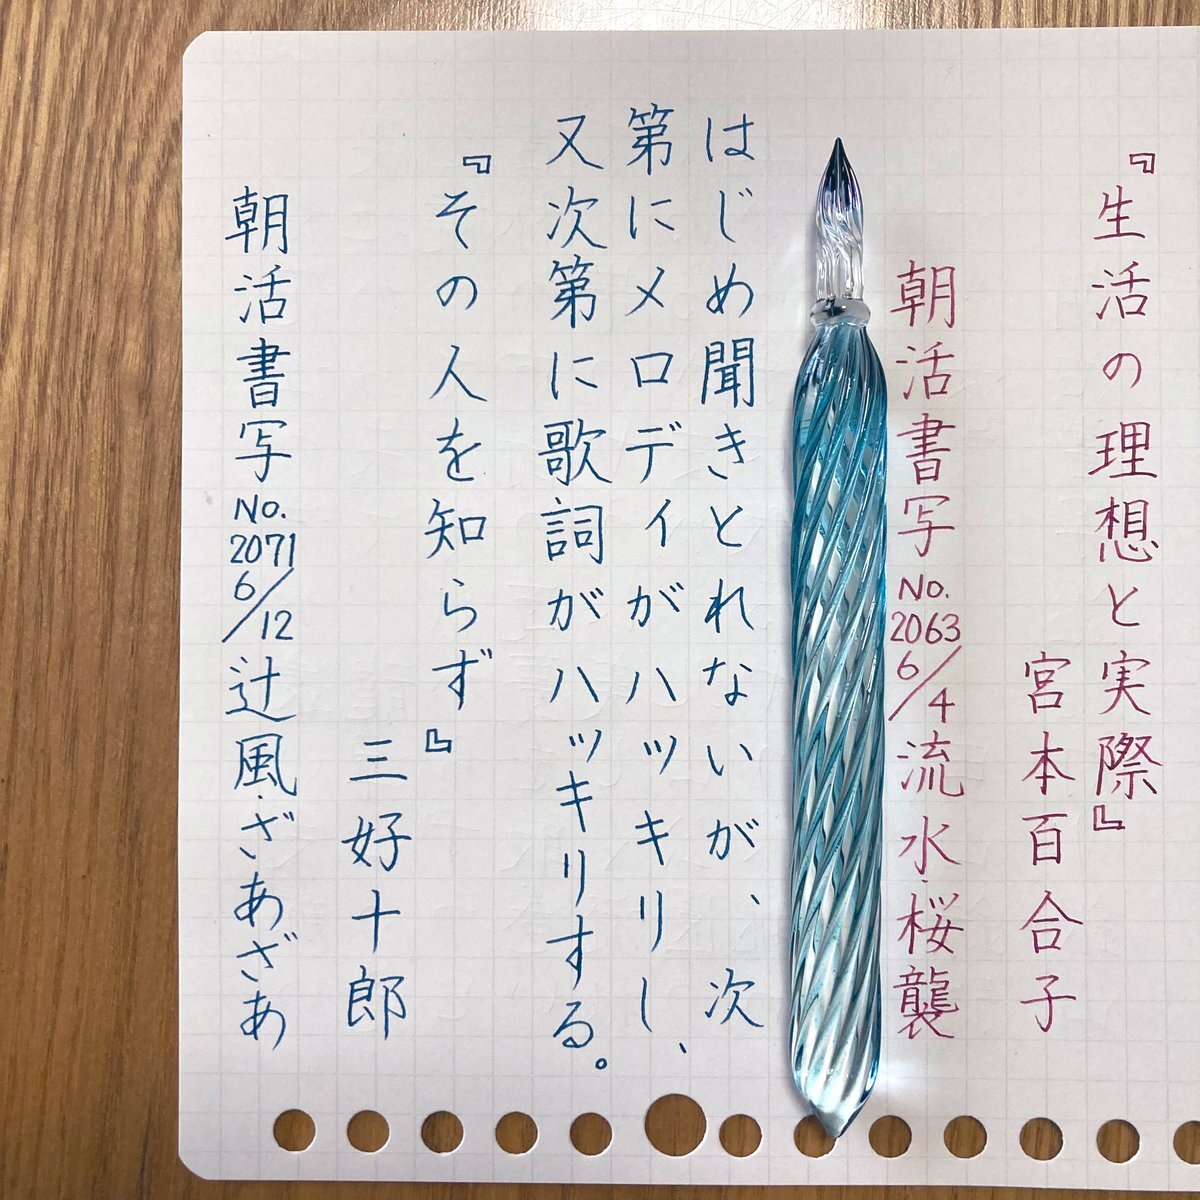 『生活の理想と実際』
宮本百合子
朝活書写No.2063 6/4流水・桜襲
はじめ聞きとれないが、次
第にメロディがハッキリし、
又次第に歌詞がハッキリする。
『その人を知らず』
三好十郎
朝活書写No.2071 6/12辻風・ざあざあ